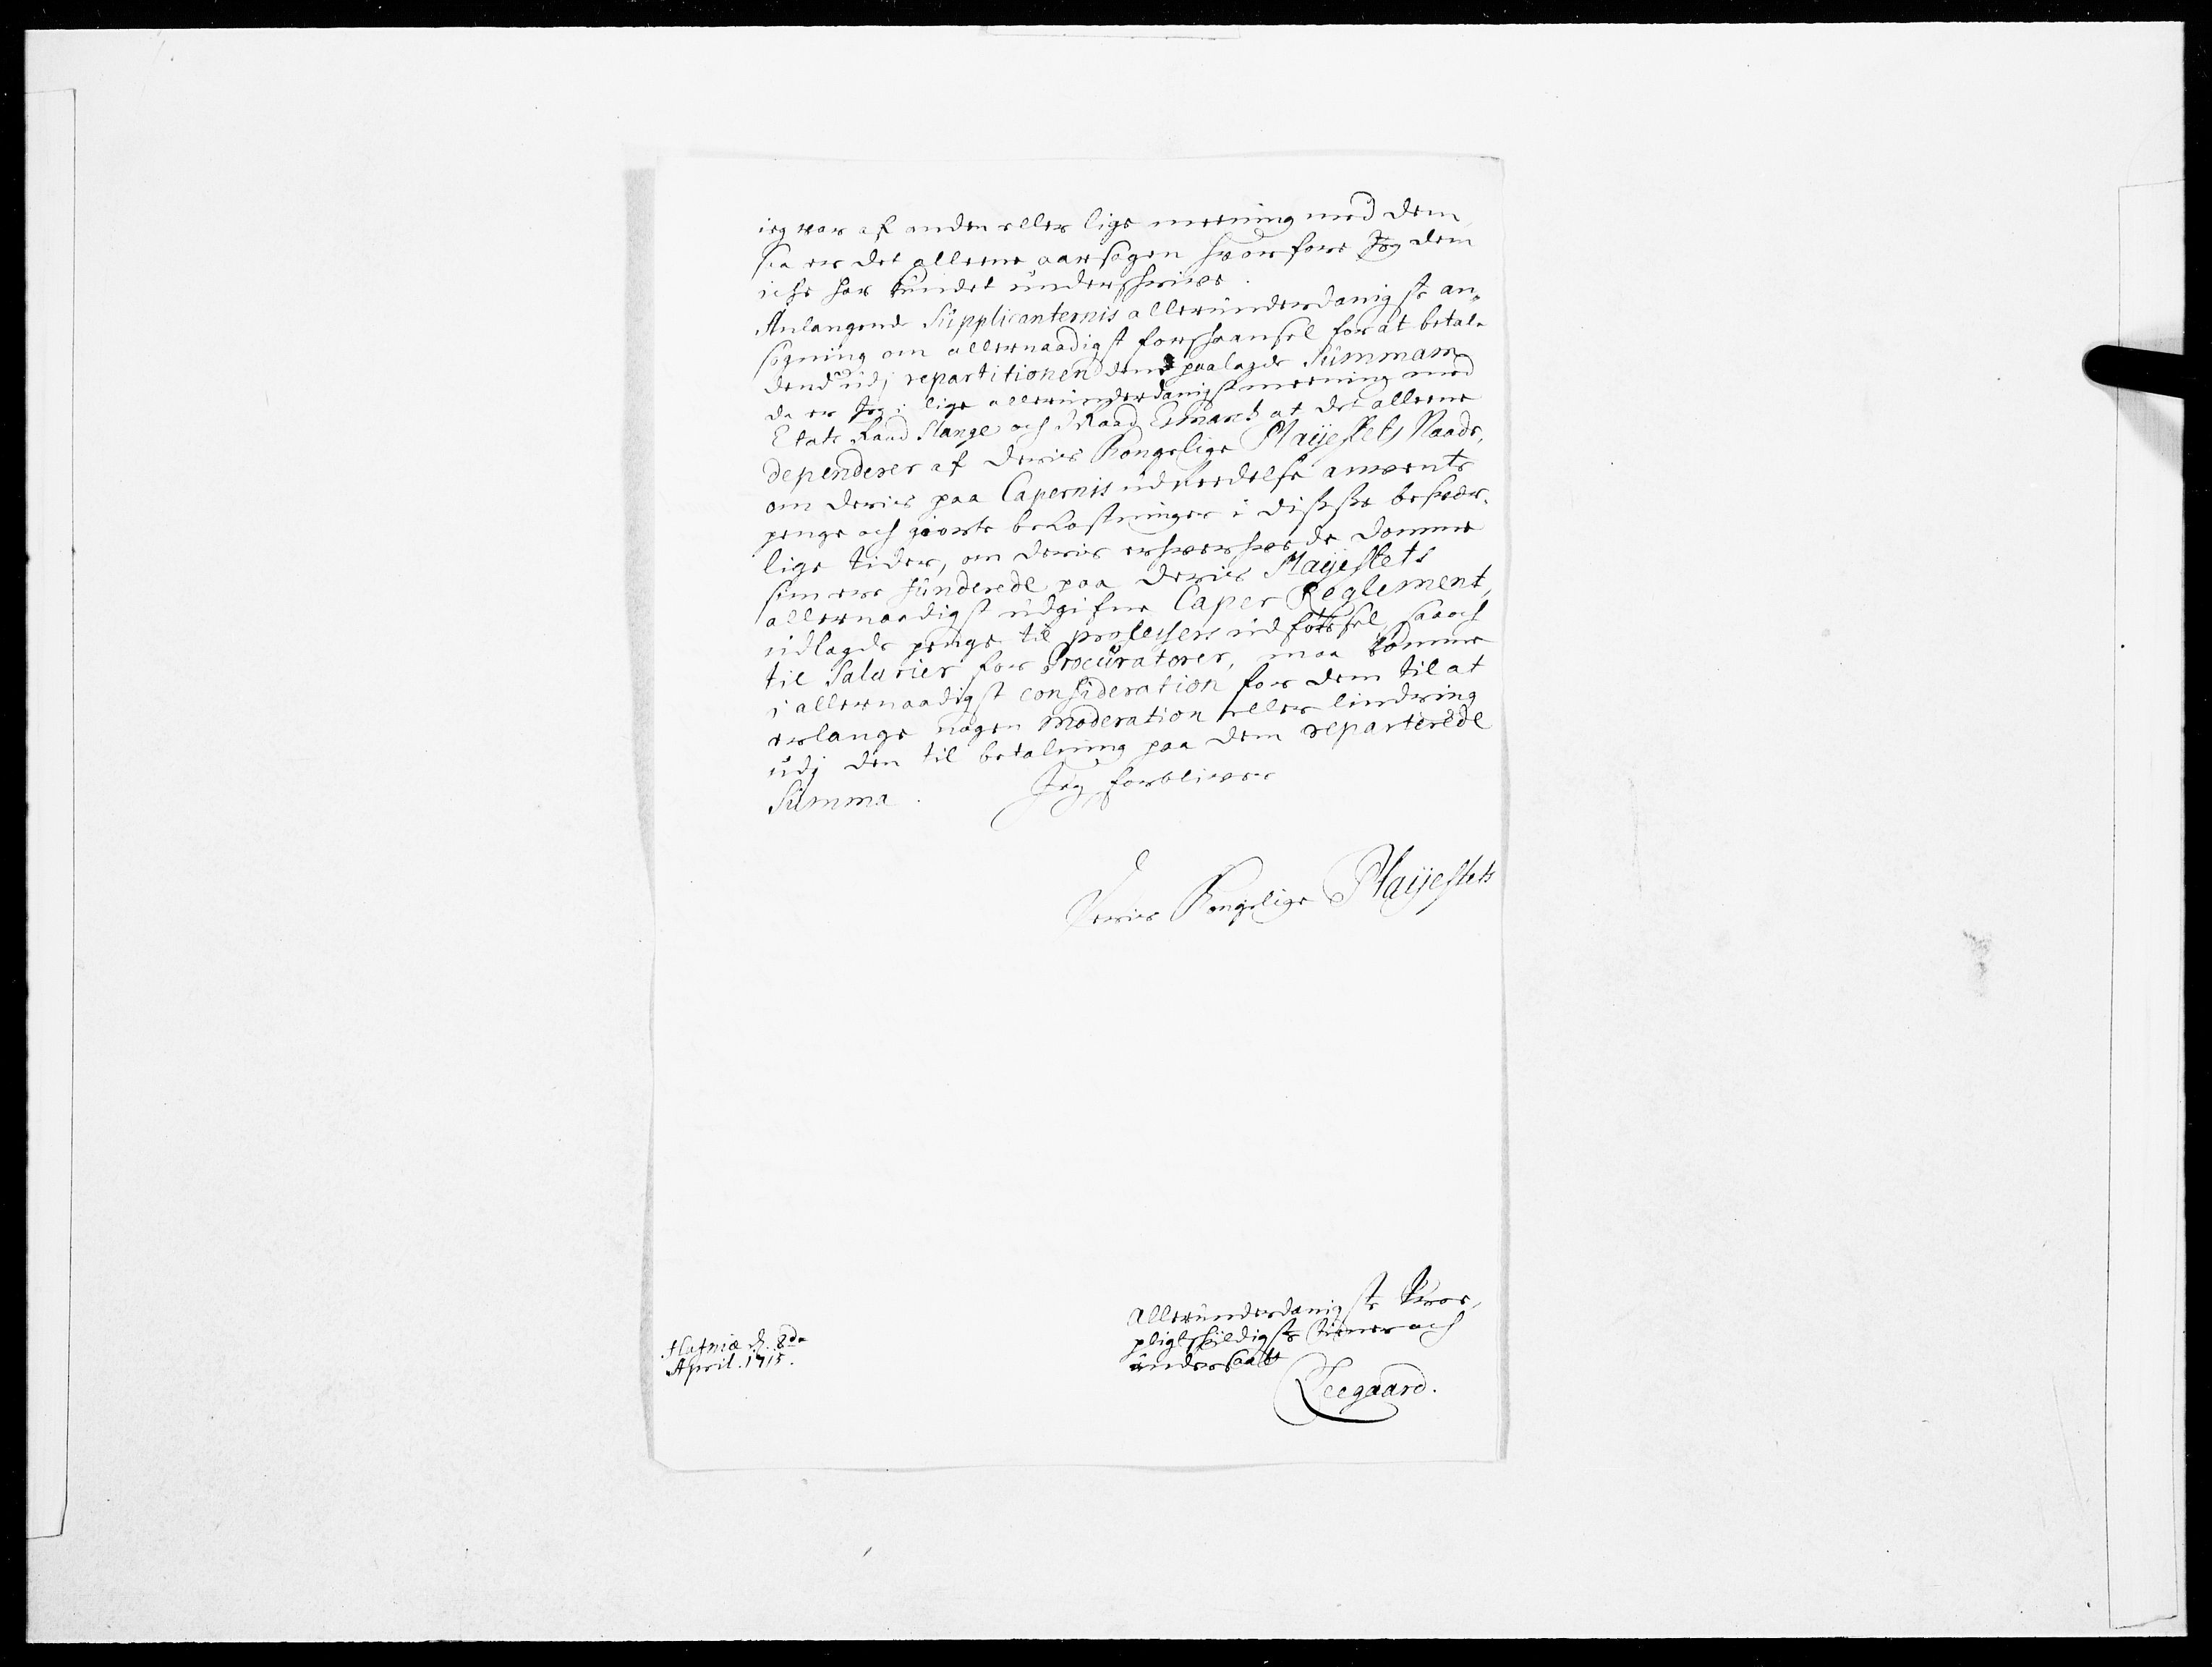 jeg var af anden eller lige meening med dem,
saa er det alleene aarsagen hvorfore Jeg dem
iche har kundet underskrive.
Anlangende Supplicanternis allerunderdanigste an„
søgning om allernaadigst forskaansel for at betale
dend udj repartitionen dem paalagde Summam,
da er Jeg i lige allerunderdanigst meening med
Etats Raad Slange och JRaad Esmarch at det alleene
dependerer af Deris Kongelige Mayestets Naade,
om deris paa Capernis udreedelse anvente
penge och giorte bekostninger i disse besvær„
lige tider, om deris erhvervede Domme
som ere funderede paa Deris Mayestets
allernaadigst udgifne Caper Reglement,
udlagde penge til processens udførsel, saa och
til Salarier for Procuratorer, maa komme
i allernaadigst consideration for dem til at
erlange nogen moderation eller lindring
udj den til betalning paa dem reparterede
Summa.
Jeg forbliver
Deris Kongelige Mayestets
Allerunderdanigste troe„
pligtskyldigste tiener och
undersaatt
Seegaard.
Hafniæ d. 8de
April. 1715.